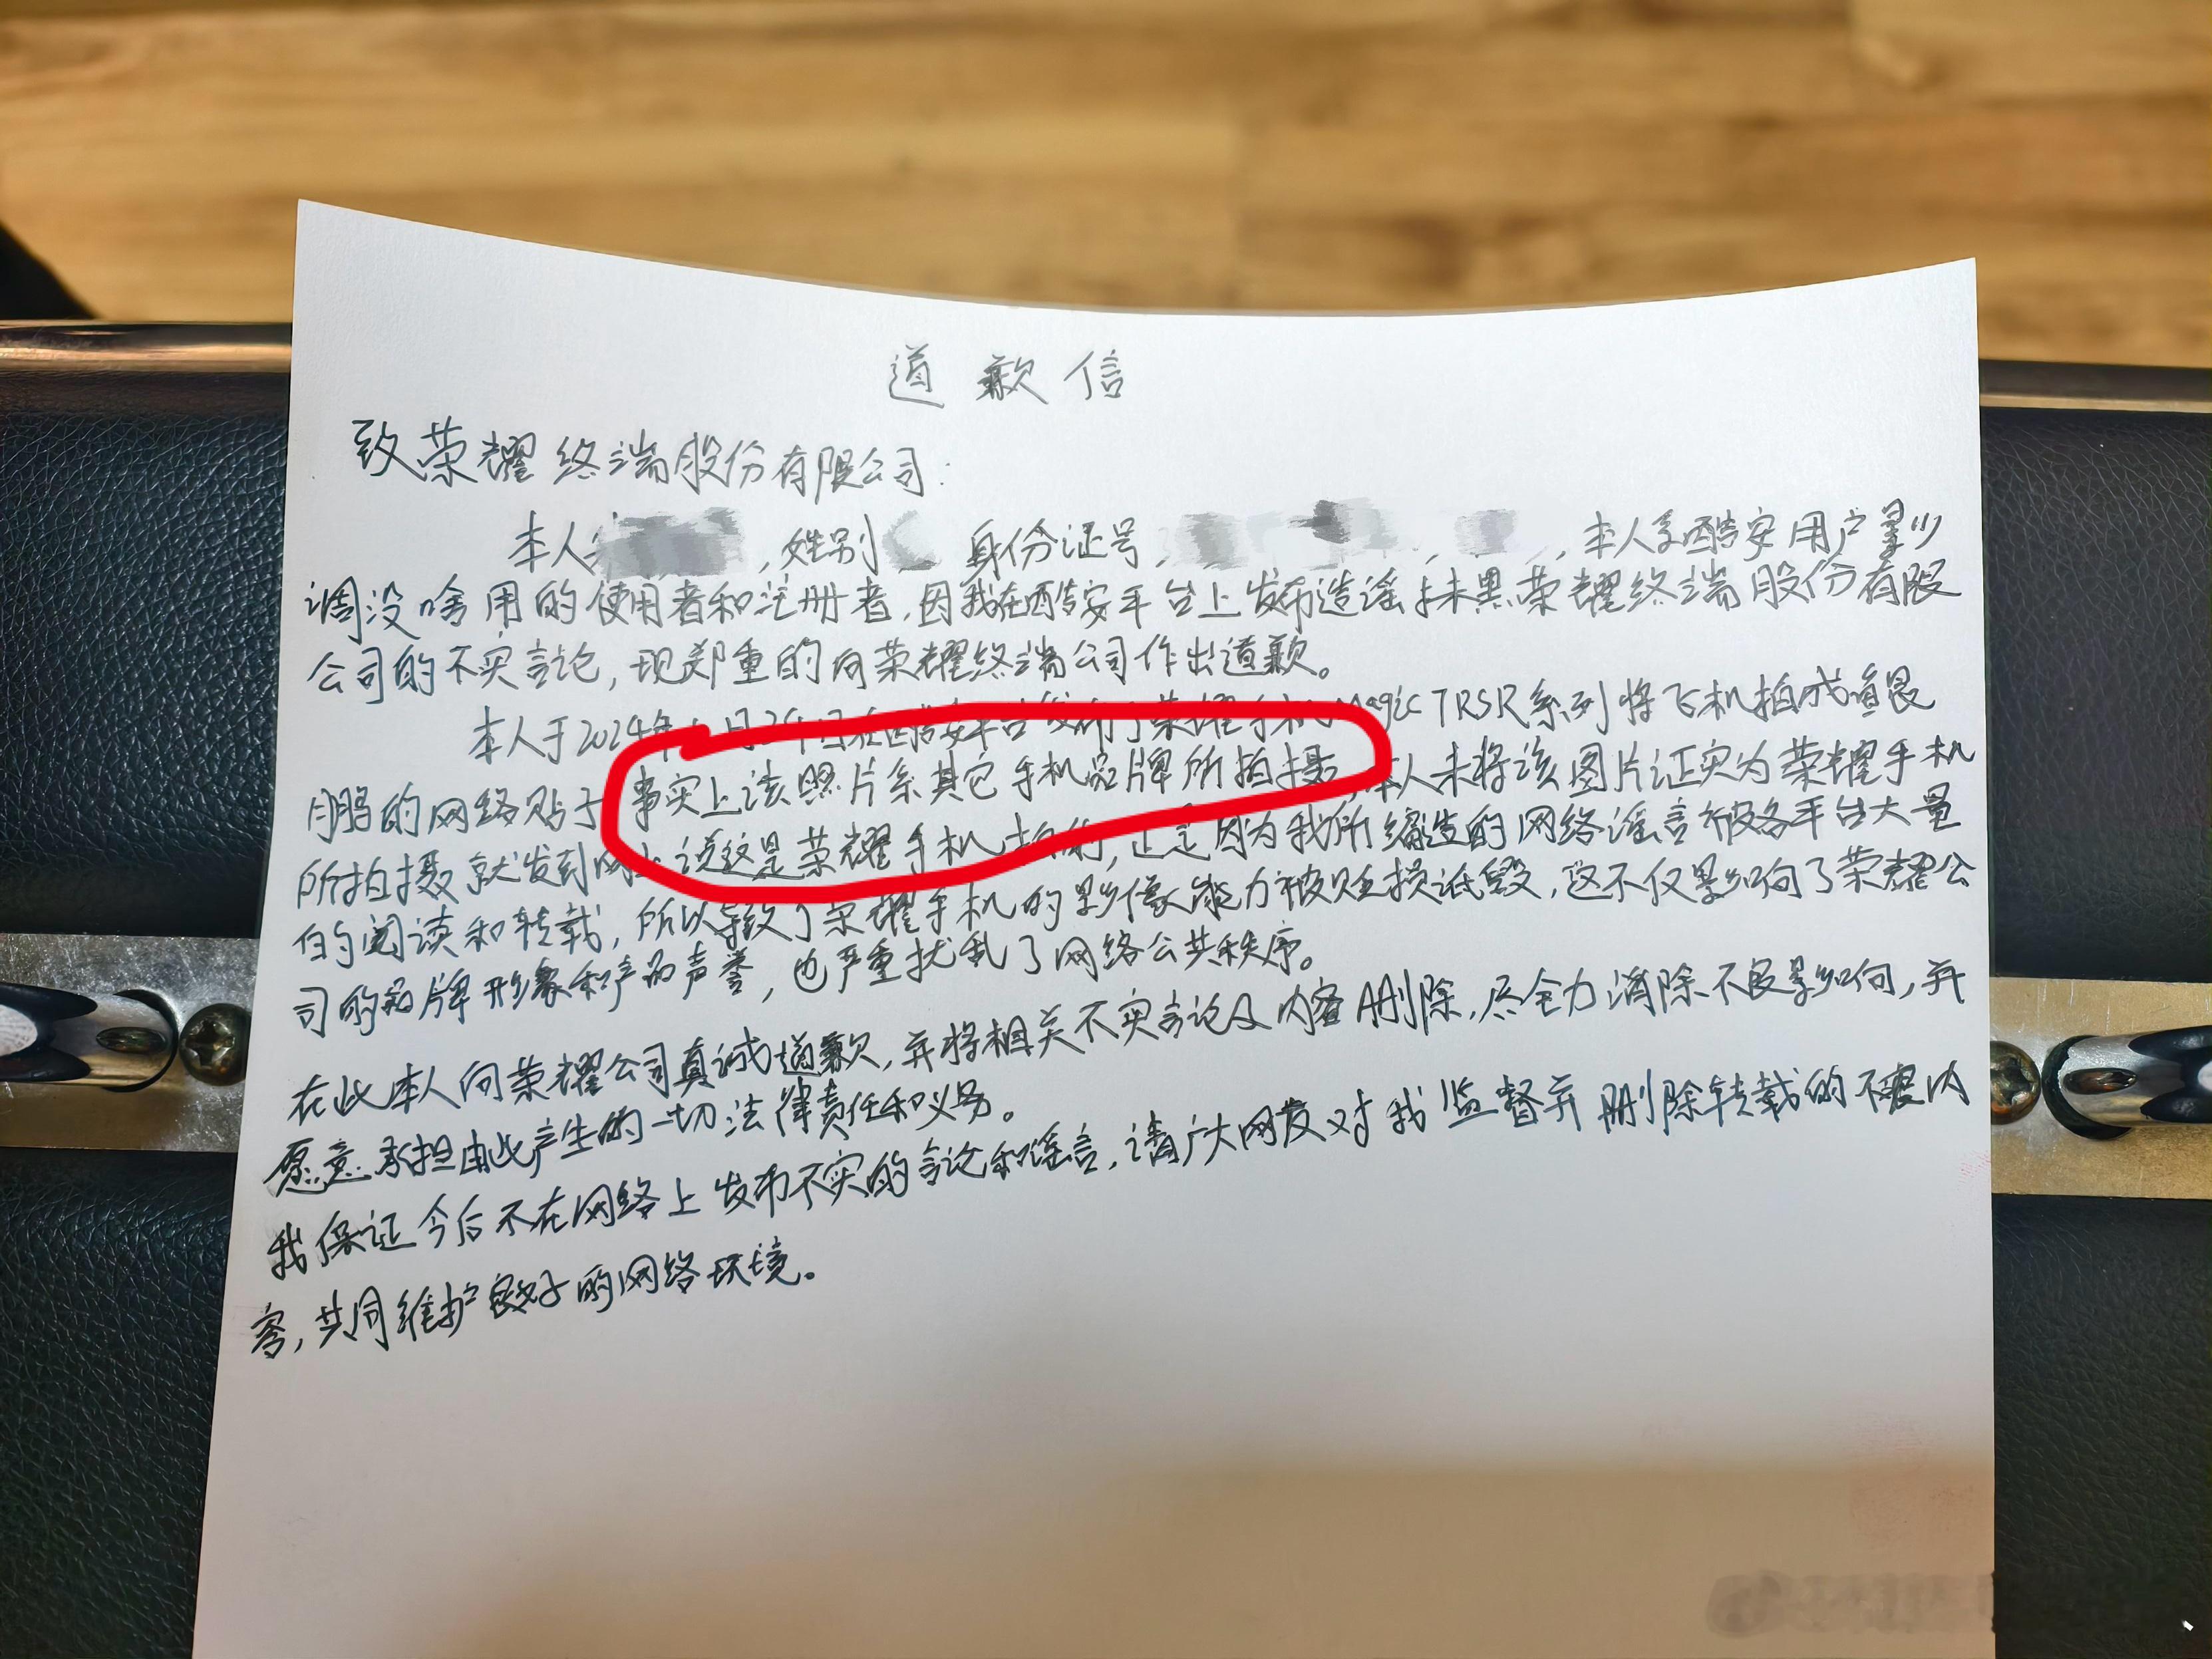 道歉信
致荣耀终端股份有限公司：
本人 ，姓别 身份证号， ， ，本人系酷安用户影
调没啥用的使用者和注册者，因我在酷安平台上发布造谣抹黑荣耀终端股份有限
公司的不实言论，现郑重的向荣耀终端公司作出道歉。
本人于2024年 月24日在酷安平台发布了荣耀手机Magic7RSR系列将飞机拍成
鹏的网络贴子 事实上该照片系其它手机品牌所拍摄，本人未将该图片证实为荣耀手机
所拍摄就发到网上说这是荣耀手机拍的，正是因为我所编造的网络谣言被各平台大量
的阅读和转载，所以导致了荣耀手机的影像能力被贬损诋毁，这不仅影响了荣耀公
司的品牌形象和产品声誉，也严重扰乱了网络公共秩序。
在此本人向荣耀公司真诚道歉，并将相关不实言论及内容删除，尽全力消除不良影响，并
愿意承担由此产生的一切法律责任和义务。
我保证今后不在网络上发布不实的言论和谣言，请广大网友对我监督并删除转载的不实内
容，共同维护 好的网络环境。